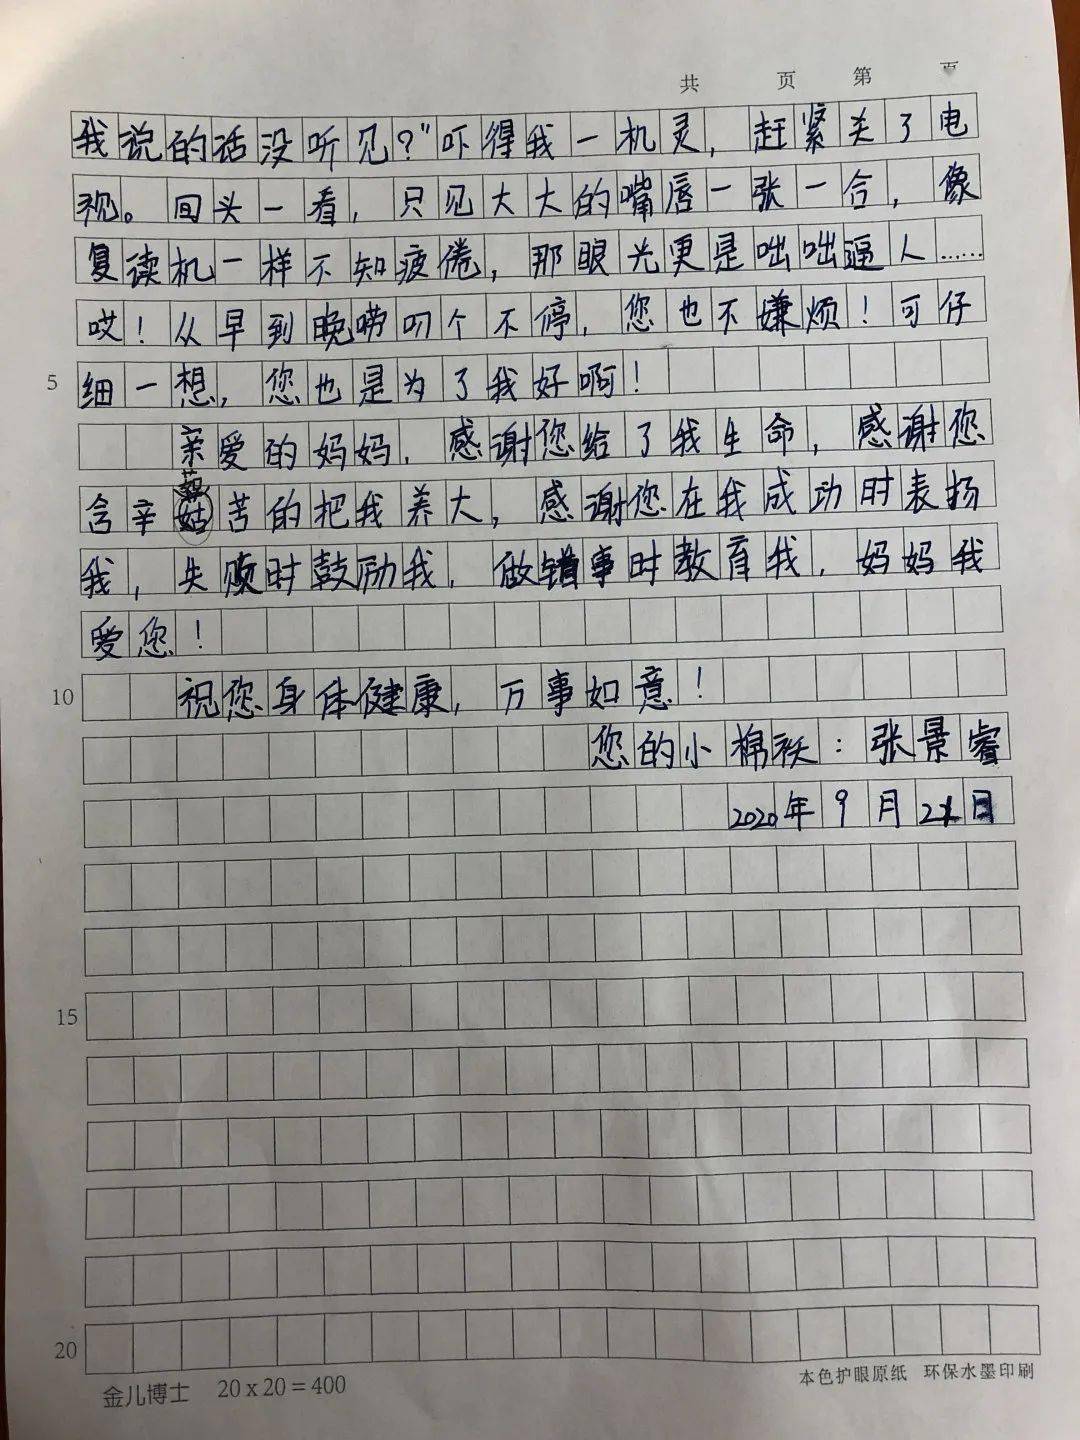 共 页 第 页
我说的话没听见？”吓得我一机灵，赶紧关了电
视。回头一看，只见大大的嘴唇一张一合，像
复读机一样不知疲倦，那眼光更是咄咄逼人……
哎！从早到晚唠叨个不停，您也不嫌烦！可仔
5 细一想，您也是为了我好啊！
亲爱的妈妈，感谢您给了我生命，感谢您
含辛茹苦的把我养大，感谢您在我成功时表扬
我，失败时鼓励我，做错事时教育我，妈妈我
爱您！
10 祝您身体健康，万事如意！
您的小棉袄：张景睿
2020年9月21日
15
20
金儿博士 20 x 20 = 400 本色护眼原纸 环保水墨印刷